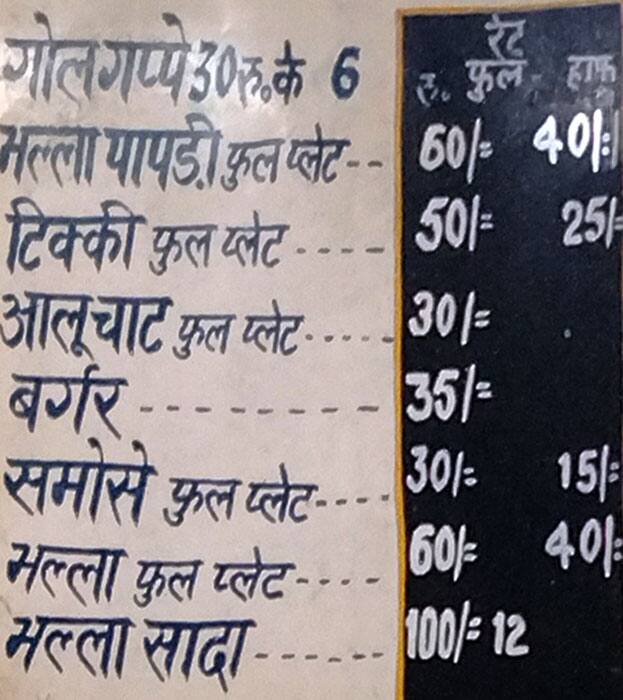 रेट
रु. फुल हाफ
गोलगप्पे 30 रु. के 6
भल्ला पापड़ी फुल प्लेट-- 60/= 40/=
टिक्की फुल प्लेट---- 50/= 25/=
आलू चाट फुल प्लेट----- 30/=
बर्गर -------- 35/=
समोसे फुल प्लेट---- 30/= 15/=
भल्ला फुल प्लेट---- 60/= 40/=
भल्ला सादा------ 100/= 12